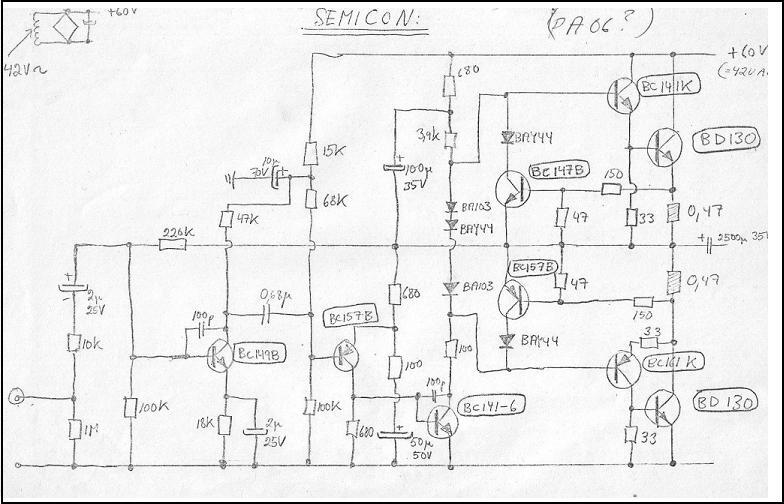 +60V
SEMICON:
(PA06?)
42V~
680
+60V
(=42VA
BC141K
3,9k
BAY44
15K
10µ
70V
+
100µ
35V
BD130
BC147B
150
68K
47K
BA103
BAY44
47
33
0,47
220K
+
2500µ 35
+
2µ
25V
BC157B
0,68µ
680
BA103
47
0,47
150
100p
BC157B
BAY44
33
10k
BC149B
100
100
BC161K
100p
1M
100K
18K
2µ
25V
100K
680
+
50µ
50V
BC141-6
33
BD130